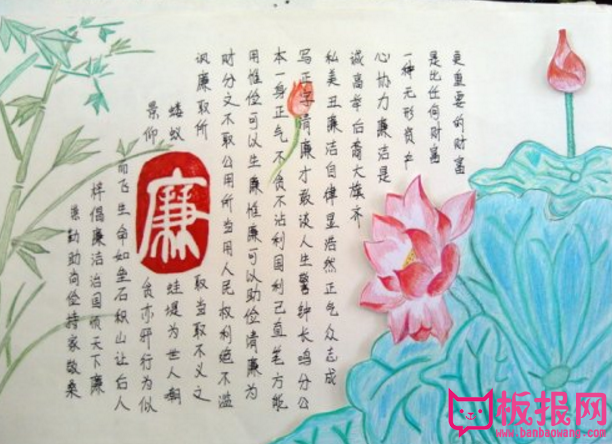 更重要的财富
是比任何财富
一种无形资产
心协力廉洁是
诚高举后大旗齐
私美丑廉洁自律显浩然正气众志成
写正字清廉才敢谈人生警钟长鸣分公
本一身正气不贪不沾利国利己直笔方能
用惟俭可以生廉惟廉可以助俭清廉为
财分文不取公用所当用人民权利绝不滥
讽廉取所取当取不义之
蝼蚁堤为世人嘲
景仰贪邪行为似
而飞生命如垒石积山让后人
梓倡廉洁治国天下廉
勤助尚俭持家敬桑
廉
板报网
www.banbaowang.com